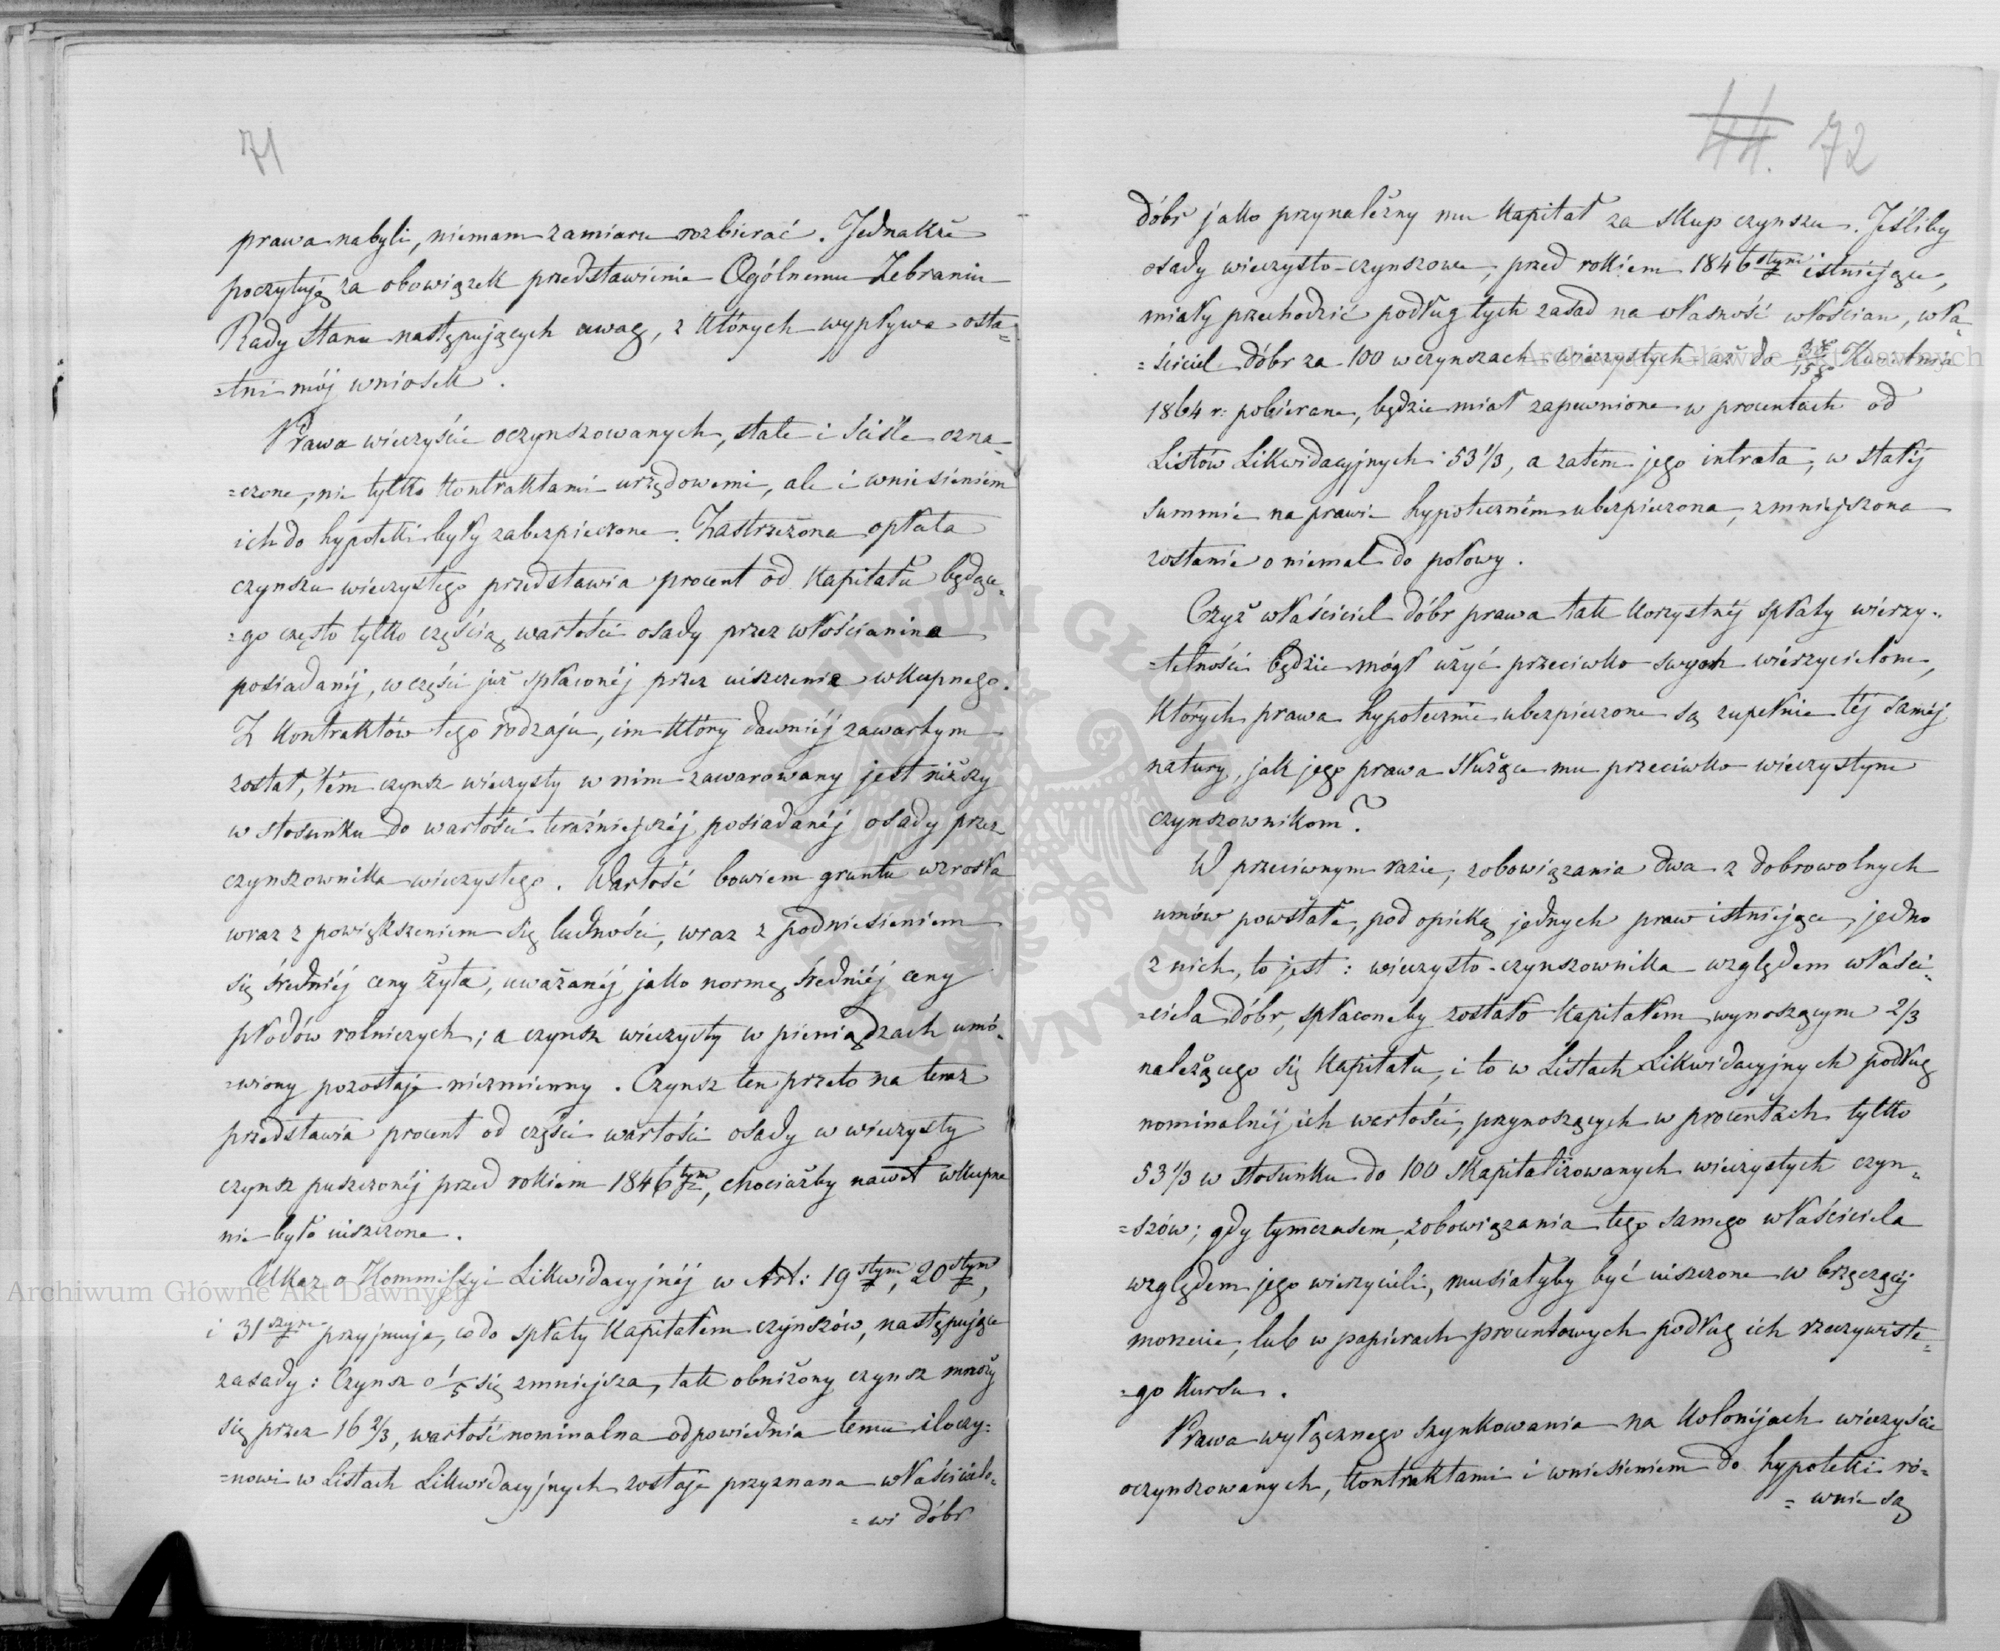 71
prawa nabyli, niemam zamiaru rozbierać. Jednakże
poczytuję za obowiązek przedstawienie Ogólnemu Zebraniu
Rady Stanu następujących uwag, z których wypływa osta=
=tni mój wniosek.
Prawa wieczyście oczynszowanych, stale i ściśle ozna=
=czone, nie tylko kontraktami urzędowemi, ale i wniesieniem
ich do hypoteki były zabezpieczone. Zastrzeżona opłata
czynszu wieczystego przedstawia procent od kapitału będące=
=go często tylko częścią wartości osady przez włościanina
posiadanéj, w części już spłaconéj przez uiszczenie wkupnego.
Z kontraktów tego rodzaju, im który dawniéj zawartym
został, tém czynsz wieczysty w nim zawarowany jest niższy
w stosunku do wartości teraźniejszéj posiadanéj osady przez
czynszownika wieczystego. Wartość bowiem gruntu wzrosła
wraz z powiększeniem się ludności, wraz z podniesieniem
się średniéj ceny żyta, uważanéj jako normę średniéj ceny
płodów rolniczych; a czynsz wieczysty w pieniądzach umó=
=wiony pozostaje niezmienny. Czynsz ten przeto na teraz
przedstawia procent od części wartości osady w wieczysty
czynsz puszczonéj przed rokiem 1846tym, chociażby nawet wkupne
nie było uiszczone.
Ukaz o Kommissyi Likwidacyjnéj w Art: 19stym, 20stym,
i 31szym przyjmuje, co do spłaty kapitałem czynszów, następujące
zasady: Czynsz o 1/5 się zmniejsza, tak obniżony czynsz mnoży
się przez 16 2/3, wartość nominalna odpowiednia temu iloczy=
=nowi w Listach Likwidacyjnych zostaje przyznana właścicielo=
=wi dóbr
44. 72
dóbr jako przynależny mu kapitał za skup czynszu. Jeśliby
osady wieczysto-czynszowe, przed rokiem 1846stym istniejące,
miały przechodzić podług tych zasad na własność włościan, wła=
=ściciel dóbr za 100 w czynszach wieczystych aż do 3/15go Kwietnia
1864 r: pobierane, będzie miał zapewnione w procentach od
Listów Likwidacyjnych 53 1/3, a zatem jego intrata, w stałéj
summie na prawie hypoteczném ubezpieczona, zmniejszona
zostanie o niemal do połowy.
Czyż właściciel dóbr prawa tak korzystnéj spłaty wierzy=
=telności będzie mógł użyć przeciwko swych wierzycielom,
których prawa hypotecznie ubezpieczone są zupełnie téj saméj
natury, jak jego prawa służące mu przeciwko wieczystym
czynszownikom?
W przeciwnym razie, zobowiązania dwa z dobrowolnych
umów powstałe, pod opieką jednych praw istniejące, jedno
z nich, to jest: wieczysto-czynszownika względem właści=
=ciela dóbr, spłacone by zostało kapitałem wynoszącym 2/3
należącego się kapitału, i to w Listach Likwidacyjnych podług
nominalnéj ich wartości, przynoszących w procentach tylko
53 1/3 w stosunku do 100 skapitalizowanych wieczystych czyn=
=szów; gdy tymczasem, zobowiązania tego samego właściciela
względem jego wierzycieli, musiałyby być uiszczone w brzęczącéj
monecie, lub w papierach procentowych podług ich rzeczywiste=
=go kursu.
Prawa wyłącznego szynkowania na kolonijach wieczyście
oczynszowanych, kontraktami i wniesieniem do hypoteki ró=
=wnie są
Archiwum Główne Akt Dawnych
Archiwum Główne Akt Dawnych
ARCHIWUM GŁÓWNE AKT DAWNYCH